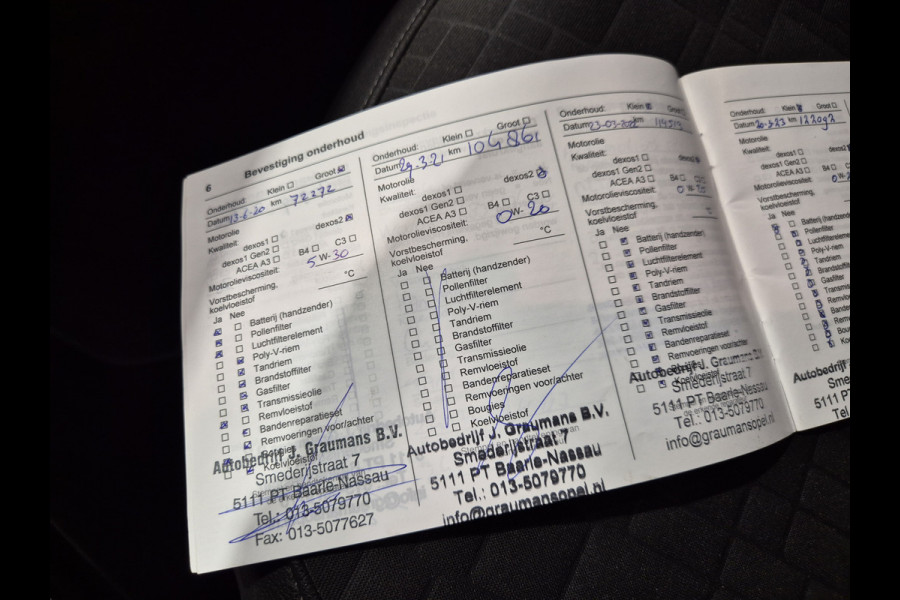 6 Bevestiging onderhoud
Onderhoud: Klein Groot
Datum 13-6-20 km 72272
Motorolie
Kwaliteit: dexos1 dexos2
dexos1 Gen2
ACEA A3 B4 C3
Motorolieviscositeit: 5 W- 30
Vorstbescherming,
koelvloeistof °C
Ja Nee
Batterij (handzender)
Pollenfilter
Luchtfilterelement
Poly-V-riem
Tandriem
Brandstoffilter
Gasfilter
Transmissieolie
Remvloeistof
Bandenreparatieset
Remvoeringen voor/achter
Bougies
Koelvloeistof
Autobedrijf J. Graumans B.V.
Smederijstraat 7
5111 PT Baarle-Nassau
Tel.: 013-5079770
Fax: 013-5077627
Onderhoud: Klein Groot
Datum 29.3.21 km 104861
Motorolie
Kwaliteit: dexos1 dexos2
dexos1 Gen2
ACEA A3 B4 C3
Motorolieviscositeit: 0 W- 20
Vorstbescherming,
koelvloeistof °C
Ja Nee
Batterij (handzender)
Pollenfilter
Luchtfilterelement
Poly-V-riem
Tandriem
Brandstoffilter
Gasfilter
Transmissieolie
Remvloeistof
Bandenreparatieset
Remvoeringen voor/achter
Bougies
Koelvloeistof
Autobedrijf J. Graumans B.V.
Smederijstraat 7
5111 PT Baarle-Nassau
Tel.: 013-5079770
info@graumansopel.nl
Onderhoud: Klein Groot
Datum 23-03-202 km
Motorolie
Kwaliteit: dexos1
dexos1 Gen2
ACEA A3 B4
Motorolieviscositeit: 0 W-
Vorstbescherming,
koelvloeistof °C
Ja Nee
Batterij (handzender)
Pollenfilter
Luchtfilterelement
Poly-V-riem
Tandriem
Brandstoffilter
Gasfilter
Transmissieolie
Remvloeistof
Bandenreparatieset
Remvoeringen voor/achter
Autobedrijf J. Graumans B.V.
Smederijstraat 7
5111 PT Baarle-Nassau
Tel.: 013-5079770
info@graumansopel.nl
Onderhoud: Klein Groot
Datum 20-3-23 km 122092
Motorolie
Kwaliteit: dexos1
dexos1 Gen2
ACEA A3 B4
Motorolieviscositeit:
Vorstbescherming,
koelvloeistof
Ja Nee
Batterij (handz
Pollenfilter
Luchtfilterelem
Poly-V-riem
Tandriem
Brandstoffi
Gasfilter
Transmis
Remvlo
Bander
Remv
Bou
Ko
Autobedrij
Sme
5111
Tel